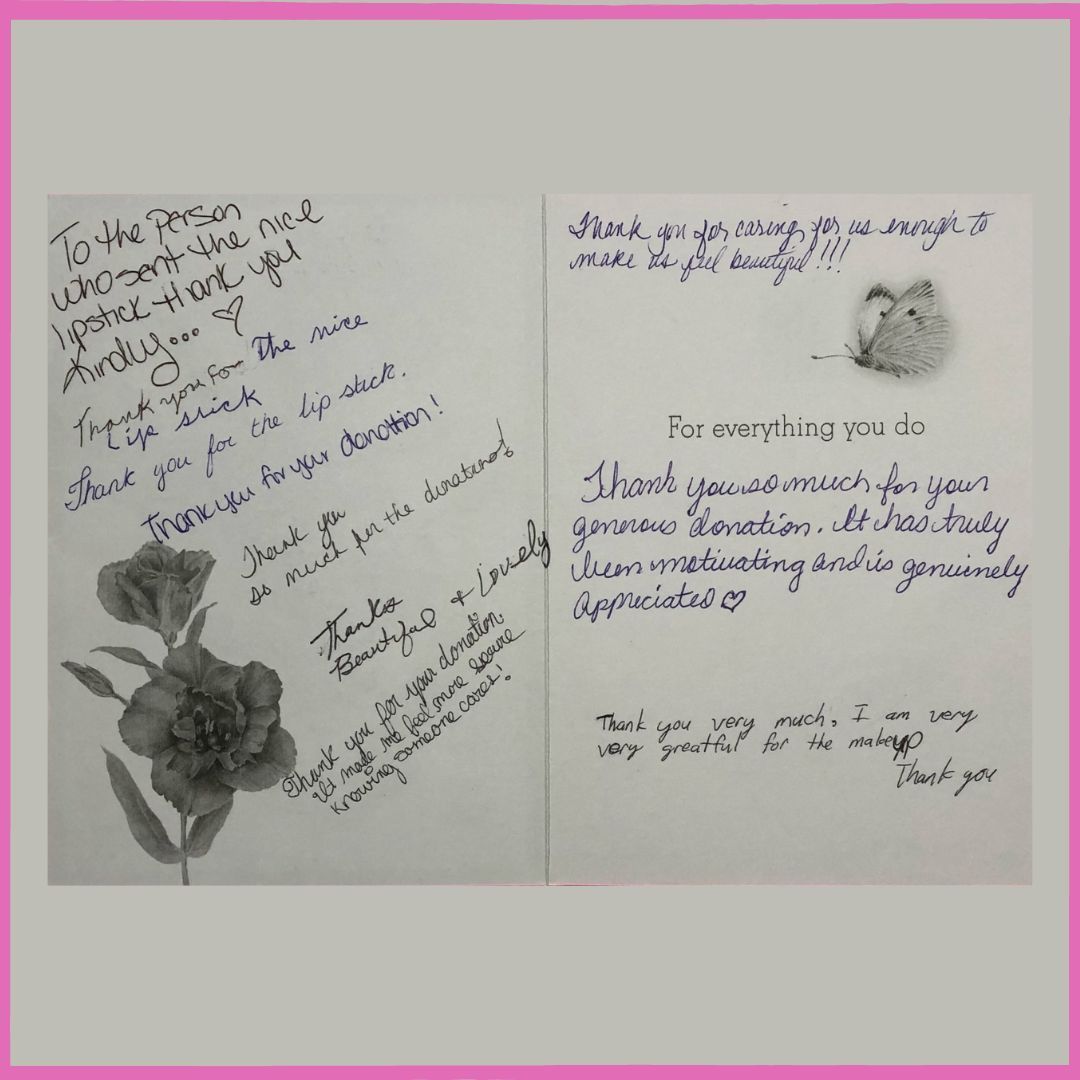 To the Person
who sent the nice
lipstick thank you
Kindly... ♡
Thank you for The nice
Lip stick
Thank you for the lip stick.
Thank you for your donattion!
Thank you
so much for the donations!
Thanks
Beautiful + Lovely
Thank you for your donation.
It made me feel more secure
knowing someone cares!
Thank you for caring for us enough to
make us feel beautiful!!!
For everything you do
Thank you so much for your
generous donation. It has truly
been motivating and is genuinely
appreciated ♡
Thank you very much, I am very
very greatful for the makeup
Thank you